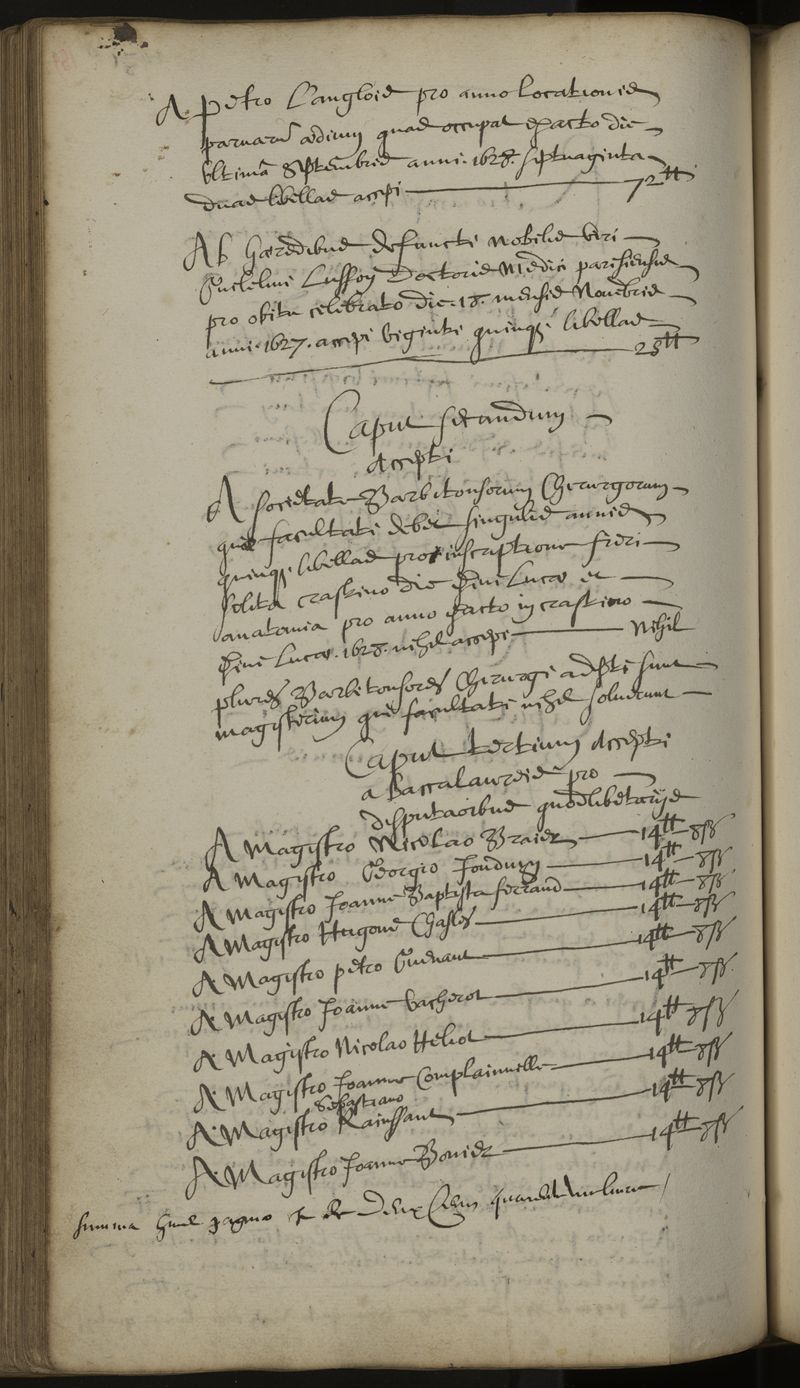 A Petro Langlois pro anno locationis
parvarū ædium quas occupat exacto die
ultima Septembris anni 1628. septuaginta
duas libellas accepi 72tt
Ab hæredibus defuncti nobilis viri
Guilelmi Lussoy Doctoris Medici parisiensis
pro obitu celebrato die 18. mensis Novembris
anni 1627. accepi viginti quinqȝ libellas
25tt
Caput secundum
Accepti
A societate Barbitonsorum Chirurgorum
quæ facultati debet singulis annis
quinqȝ libellas pro inscriptione fieri
solita crastino die divi Lucæ et
anatomia pro anno exacto in crastino
divi Lucæ 1628. nihil accepi Nihil
plures Barbitonsores Chirurgi adepti sunt
magisterium qui facultati nihil solverunt
Caput tertium Accepti
a Baccalaureis pro
disputaōibus quodlibetarijs
A Magistro Nicolao Braier 14tt 8ß
A Magistro Georgio Joudouyn 14tt 8ß
A Magistro Joanne Baptista ferrand 14tt 8ß
A Magistro Hugone Chasles 14tt 8ß
A Magistro petro Guenaut 14tt 8ß
A Magistro Joanne Vacherot 14tt 8ß
A Magistro Nicolao Heliot 14tt 8ß
A Magistro Joanne Complainville 14tt 8ß
Sebastiano
A Magistro Rainssant 14tt 8ß
A Magistro Joanne Bourier 14tt 8ß
summa huius paginæ est de Deux Cens quarante une livres